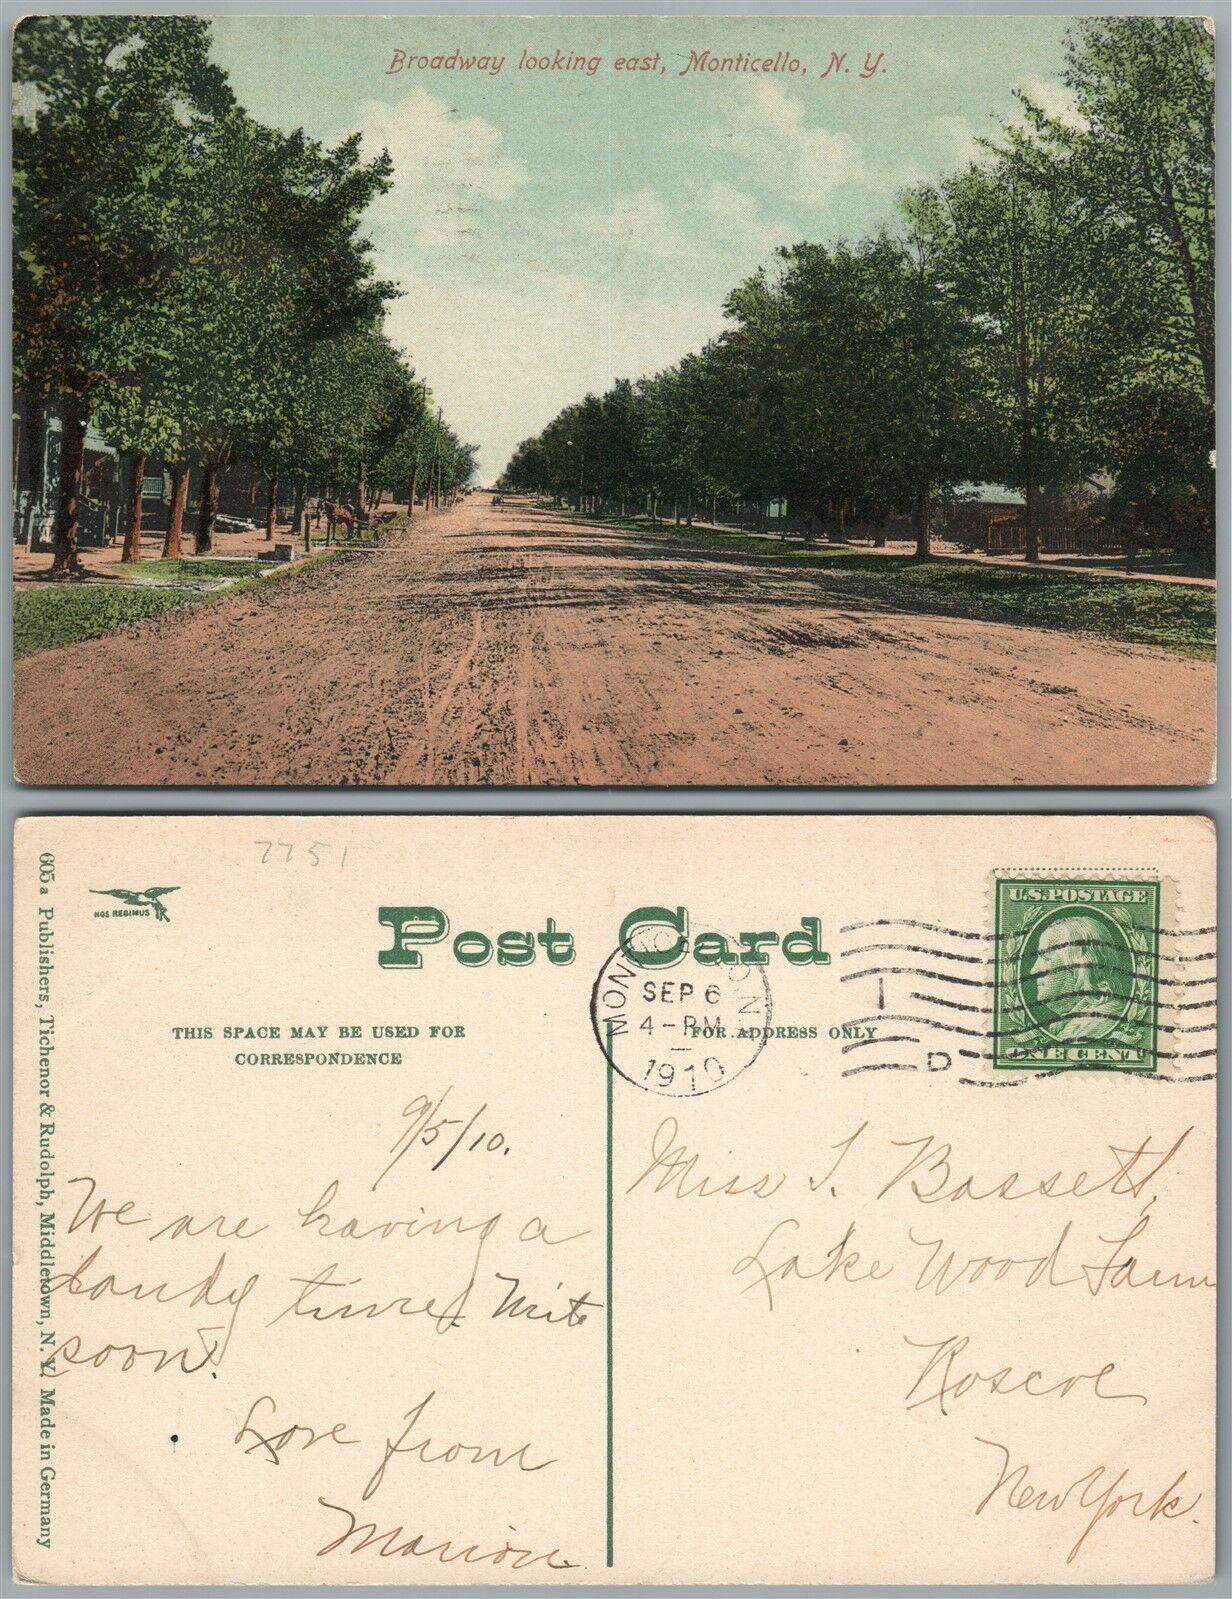 Broadway looking east, Monticello, N. Y.
7751
NOS REGIMUS
Post Card
THIS SPACE MAY BE USED FOR
CORRESPONDENCE
FOR ADDRESS ONLY
605a Publishers, Tichenor & Rudolph, Middletown, N. Y. Made in Germany
SEP 6
4-PM
1910
D
U.S. POSTAGE
ONE CENT
9/5/10.
We are having a
dandy time. Write
soon.
Love from
Marion
Miss I. Bassett,
Lake Wood Farm
Roscoe
New York.